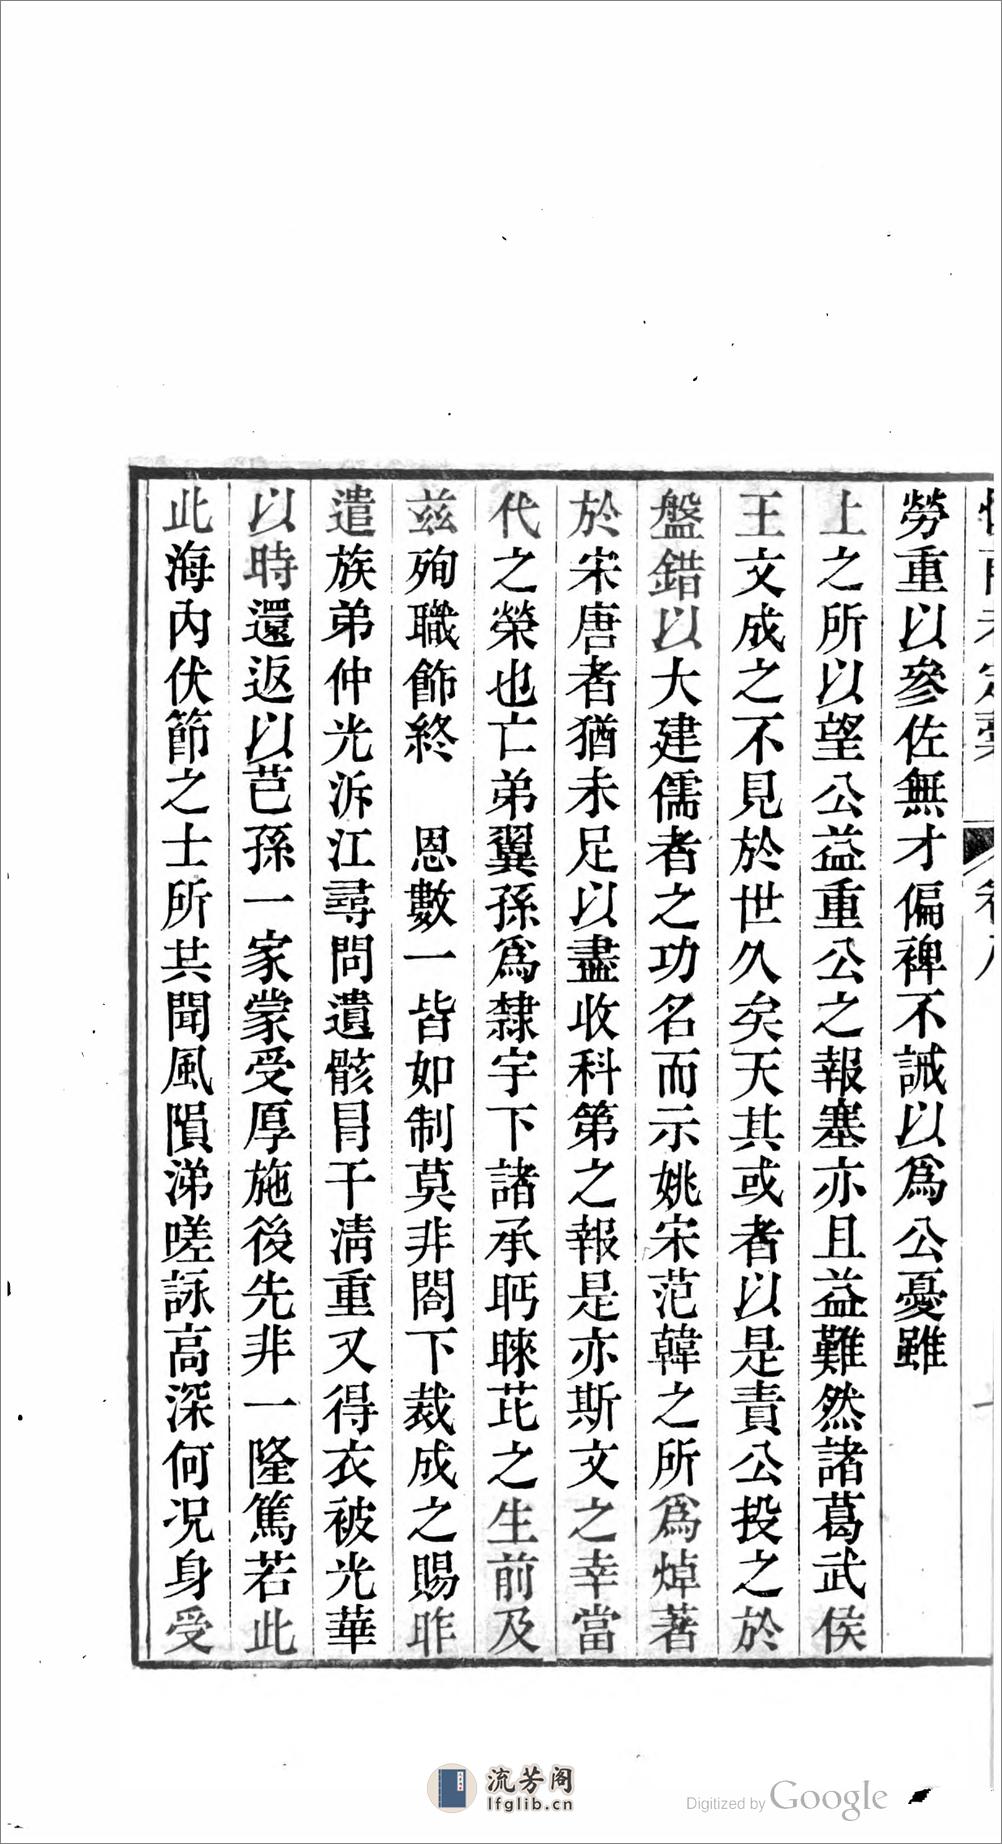 未定稾
勞重以參佐無才偏裨不誡以爲公憂雖
上之所以望公益重公之報塞亦且益難然諸葛武侯
王文成之不見於世久矣天其或者以是責公投之於
盤錯以大建儒者之功名而示姚宋范韓之所爲焯著
於宋唐者猶未足以盡收科第之報是亦斯文之幸當
代之榮也亡弟翼孫爲隸宇下諸承眄睞芘之生前及
兹殉職飾終 恩數一皆如制莫非閤下裁成之賜昨
遣族弟仲光泝江尋問遺骸冐干淸重又得衣被光華
以時還返以芑孫一家蒙受厚施後先非一隆篤若此
此海內伏節之士所共聞風隕涕嗟詠高深何况身受
流芳阁
lfglib.cn
Digitized by Google